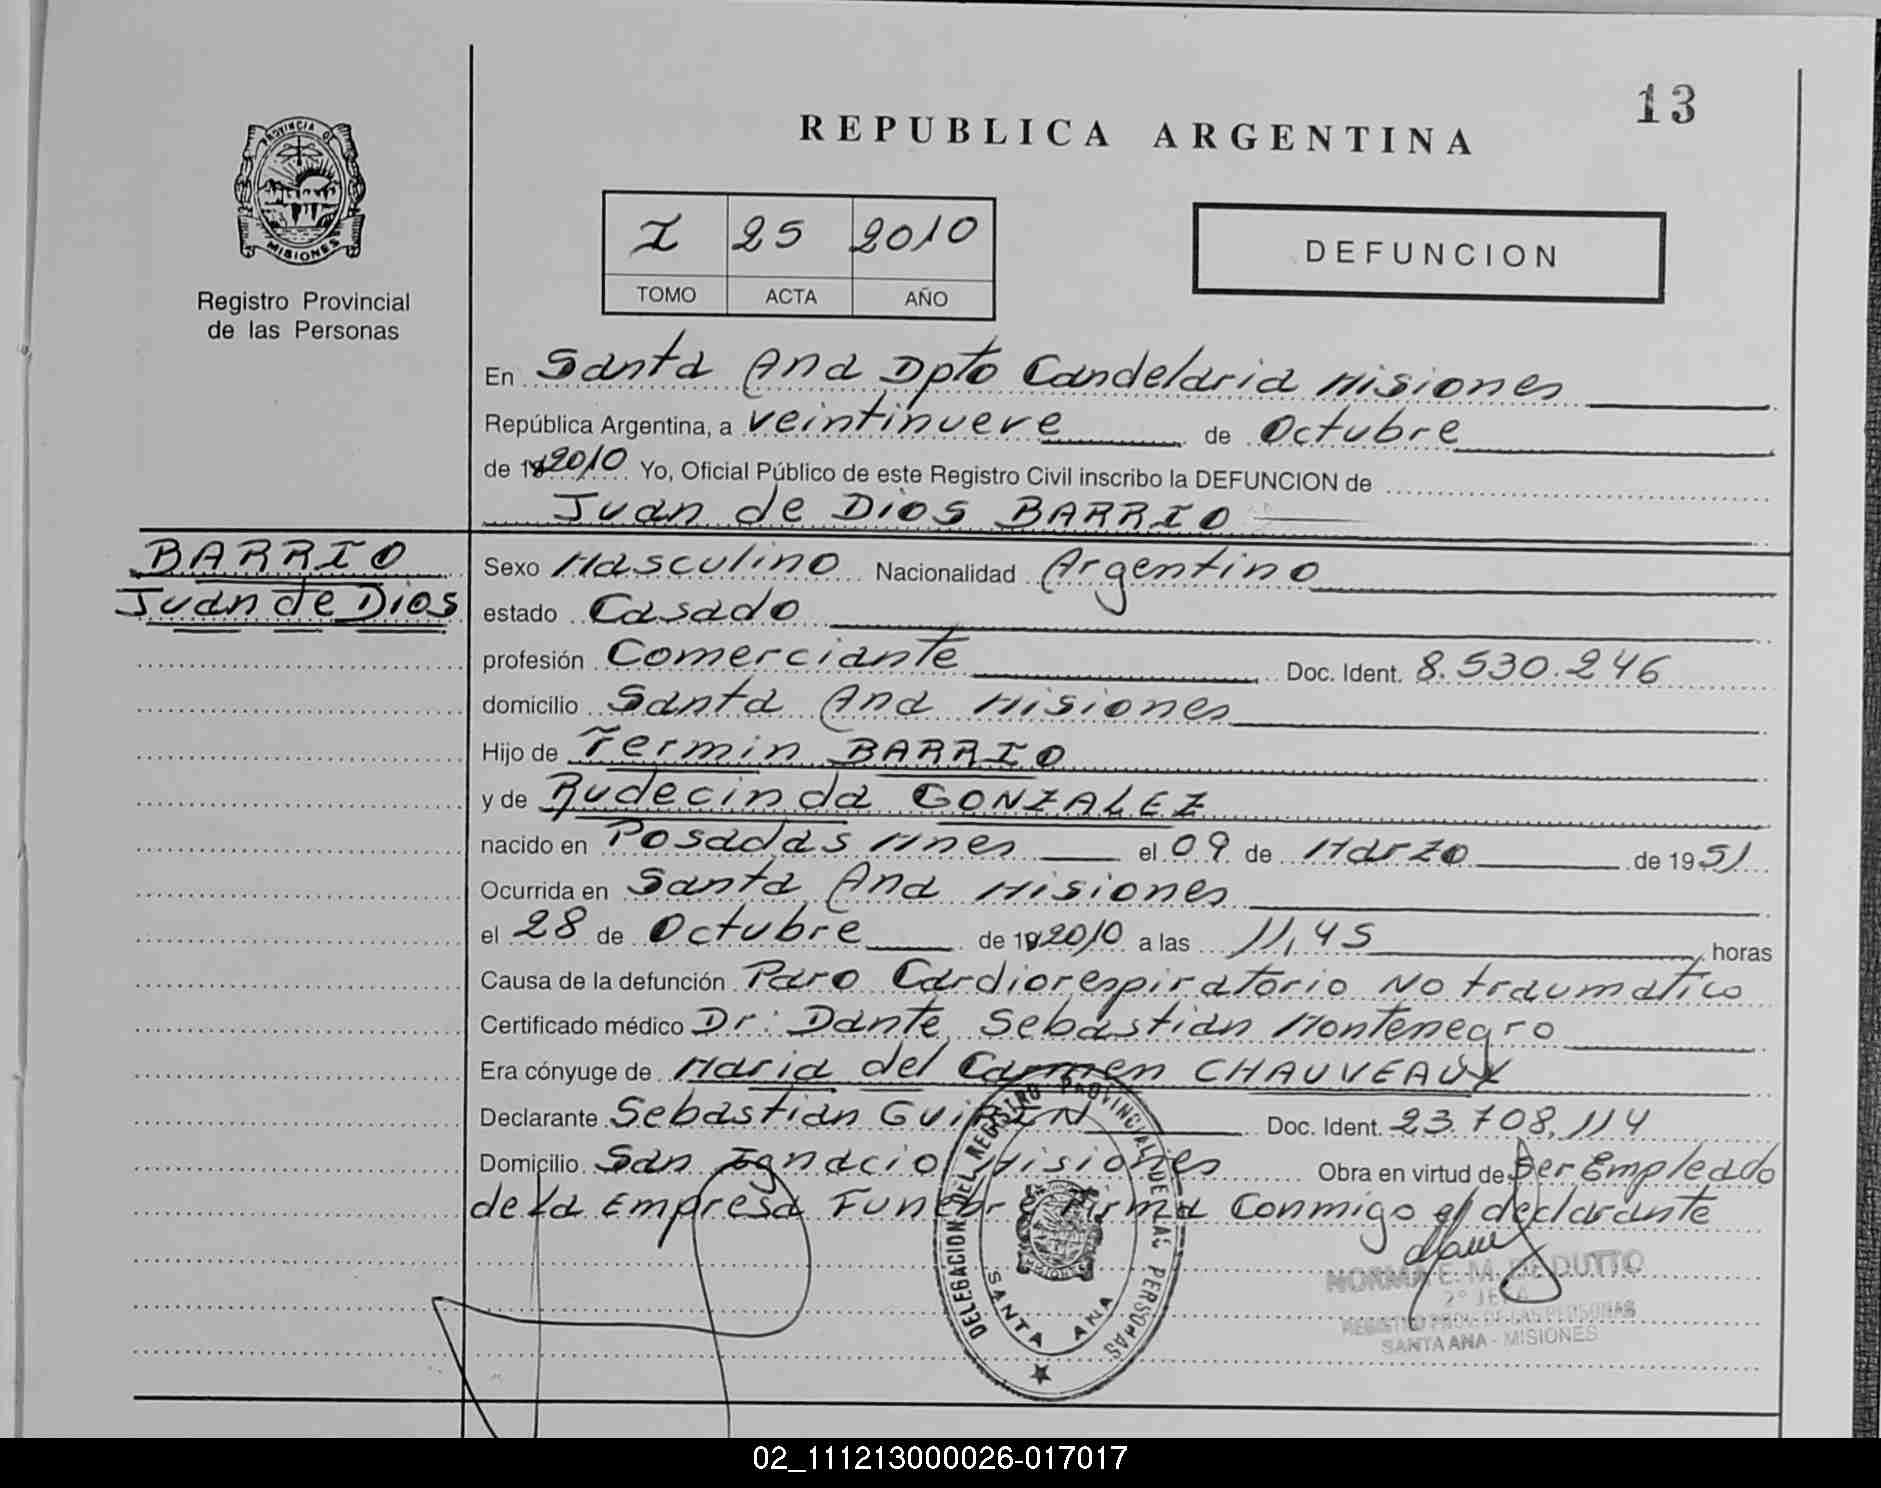 13
REPUBLICA ARGENTINA
PROVINCIA DE
MISIONES
Registro Provincial
de las Personas
I 25 2010
TOMO ACTA AÑO
DEFUNCION
En Santa Ana Dpto Candelaria Misiones
República Argentina, a veintinueve de Octubre
de 2010 Yo, Oficial Público de este Registro Civil inscribo la DEFUNCION de
Juan de Dios BARRIO
BARRIO
Juan de Dios
Sexo Masculino Nacionalidad Argentino
estado Casado
profesión Comerciante Doc. Ident. 8.530.246
domicilio Santa Ana Misiones
Hijo de Fermin BARRIO
y de Rudecinda GONZALEZ
nacido en Posadas Mnes el 09 de Marzo de 1951
Ocurrida en Santa Ana Misiones
el 28 de Octubre de 2010 a las 11,45 horas
Causa de la defunción Paro Cardiorespiratorio No traumatico
Certificado médico Dr: Dante Sebastian Montenegro
Era cónyuge de Maria del Carmen CHAUVEAUX
Declarante Sebastian Doc. Ident. 23.708.114
Domicilio San Ignacio Misiones Obra en virtud de Ser Empleado
de la Empresa Funebre Firma Conmigo el declarante
DELEGACION DEL REGISTRO PROVINCIAL DE LAS PERSONAS
SANTA ANA
NORMA E. M. DE DUTTO
2° JEFA
REGISTRO PROV. DE LAS PERSONAS
SANTA ANA - MISIONES
02_111213000026-017017